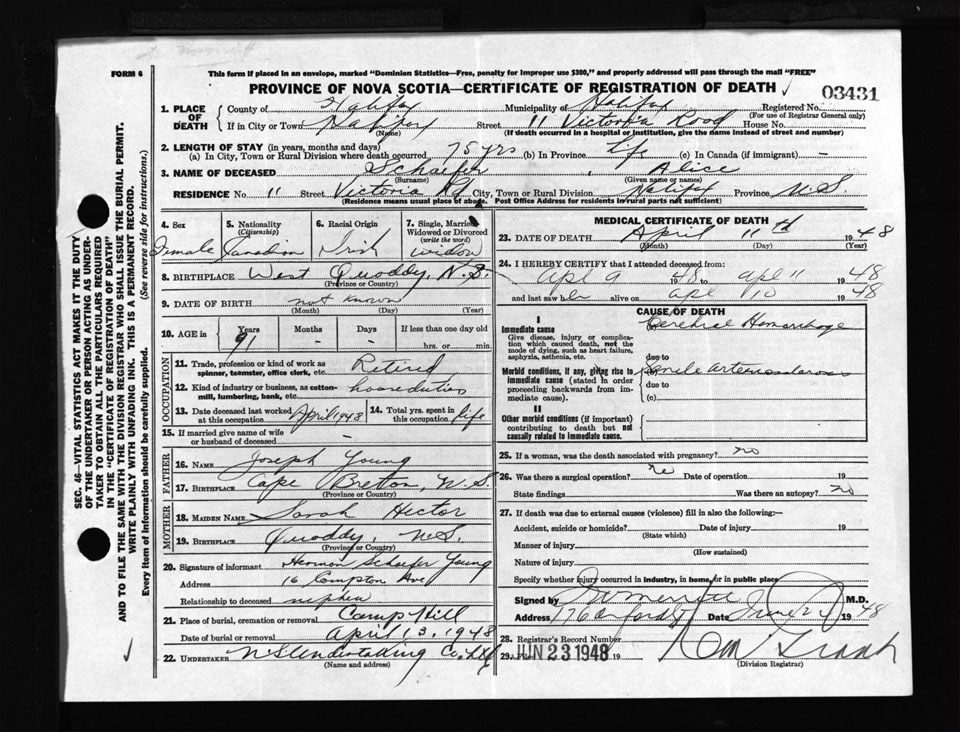 FORM 6
This form if placed in an envelope, marked "Dominion Statistics—Free, penalty for improper use $300," and properly addressed will pass through the mail "FREE"
PROVINCE OF NOVA SCOTIA—CERTIFICATE OF REGISTRATION OF DEATH
03431
1. PLACE OF DEATH
County of Halifax Municipality of Halifax Registered No.
(For use of Registrar General only)
If in City or Town Halifax Street 11 Victoria Road House No.
(Name) (If death occurred in a hospital or institution, give the name instead of street and number)
2. LENGTH OF STAY (in years, months and days)
(a) In City, Town or Rural Division where death occurred 75 yrs (b) In Province life (c) In Canada (if immigrant) —
3. NAME OF DECEASED Schaefer, Alice
(Surname) (Given name or names)
RESIDENCE No. 11 Street Victoria Rd City, Town or Rural Division Halifax Province N.S.
(Residence means usual place of abode. Post Office Address for residents in rural parts not sufficient)
4. Sex Female
5. Nationality (Citizenship) Canadian
6. Racial Origin Irish
7. Single, Married, Widowed or Divorced (write the word) widow
8. BIRTHPLACE West Quoddy, N.S.
(Province or Country)
9. DATE OF BIRTH not known
(Month) (Day) (Year)
10. AGE in Years 91 Months - Days - If less than one day old hrs. or min.
OCCUPATION
11. Trade, profession or kind of work as spinner, teamster, office clerk, etc. Retired
12. Kind of industry or business, as cotton-mill, lumbering, bank, etc. houseduties
13. Date deceased last worked at this occupation April 1948
14. Total yrs. spent in this occupation life
15. If married give name of wife or husband of deceased -
FATHER
16. NAME Joseph Young
17. BIRTHPLACE Cape Bretton, N.S.
MOTHER
18. MAIDEN NAME Sarah Hector
19. BIRTHPLACE Quoddy, N.S.
(Province or Country)
20. Signature of informant Herman Schaefer Young
Address 16 Compton Ave
Relationship to deceased nephew
21. Place of burial, cremation or removal Camp Hill
Date of burial or removal April 13, 1948
22. UNDERTAKER N S Undertaking Co. Ltd
(Name and address)
MEDICAL CERTIFICATE OF DEATH
23. DATE OF DEATH April 11th 1948
(Month) (Day) (Year)
24. I HEREBY CERTIFY that I attended deceased from:
Apl 9 1948 to Apl 11 1948
and last saw her alive on Apl 10 1948
CAUSE OF DEATH
I
Immediate cause
Give disease, injury or complication which caused death, not the mode of dying, such as heart failure, asphyxia, asthenia, etc.
Cerebral Hemorrhage
due to
Morbid conditions, if any, giving rise to immediate cause (stated in order proceeding backwards from immediate cause).
Senile arteriosclerosis
due to
(c)
II
Other morbid conditions (if important) contributing to death but not causally related to immediate cause.
25. If a woman, was the death associated with pregnancy? no
26. Was there a surgical operation? no Date of operation 19
State findings Was there an autopsy? no
27. If death was due to external causes (violence) fill in also the following:—
Accident, suicide or homicide? Date of injury 19
(State which)
Manner of injury
(How sustained)
Nature of injury
Specify whether injury occurred in industry, in home, or in public place
Signed by M.D.
Address Date June 1948
28. Registrar's Record Number
29. Filed JUN 23 1948 19
(Division Registrar)
SEC. 46—VITAL STATISTICS ACT MAKES IT THE DUTY OF THE UNDERTAKER OR PERSON ACTING AS UNDERTAKER TO OBTAIN ALL THE PARTICULARS REQUIRED IN THE "CERTIFICATE OF REGISTRATION OF DEATH" AND TO FILE THE SAME WITH THE DIVISION REGISTRAR WHO SHALL ISSUE THE BURIAL PERMIT.
WRITE PLAINLY WITH UNFADING INK. THIS IS A PERMANENT RECORD.
Every item of information should be carefully supplied. (See reverse side for instructions.)